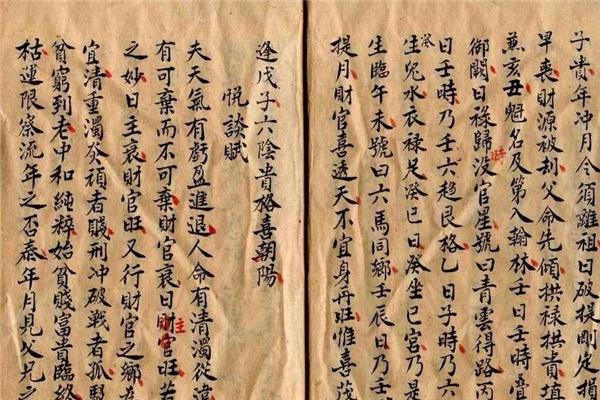 子貴年冲月令須離祖日破提剛定損
早喪財源被刦父命先傾拱禄拱貴填
蒸亥丑魁名及第入翰林壬日壬時疊
御闕日禄歸時没官星號曰青雲得路丙
日壬時乃壬六趨艮格乙日子時乃六
生癸兒水衣禄足癸巳日癸坐巳宮乃是
生臨午未號曰六馬同鄉壬辰日乃壬
提月財官喜透天不宜身丹旺惟喜茂
逢戊子六陰貴格喜朝陽
悅談賦
夫天氣有虧盈進退人命有清濁從違
有可棄而不可棄財官衰日主財官旺若
之妙日主衰財官旺又行財官之鄉
宜清重濁夯頑者賤刑冲破戰者孤
貧窮到老中和純粹始貧賤富貴臨終
枯運限察流年之否泰年月見父兄之